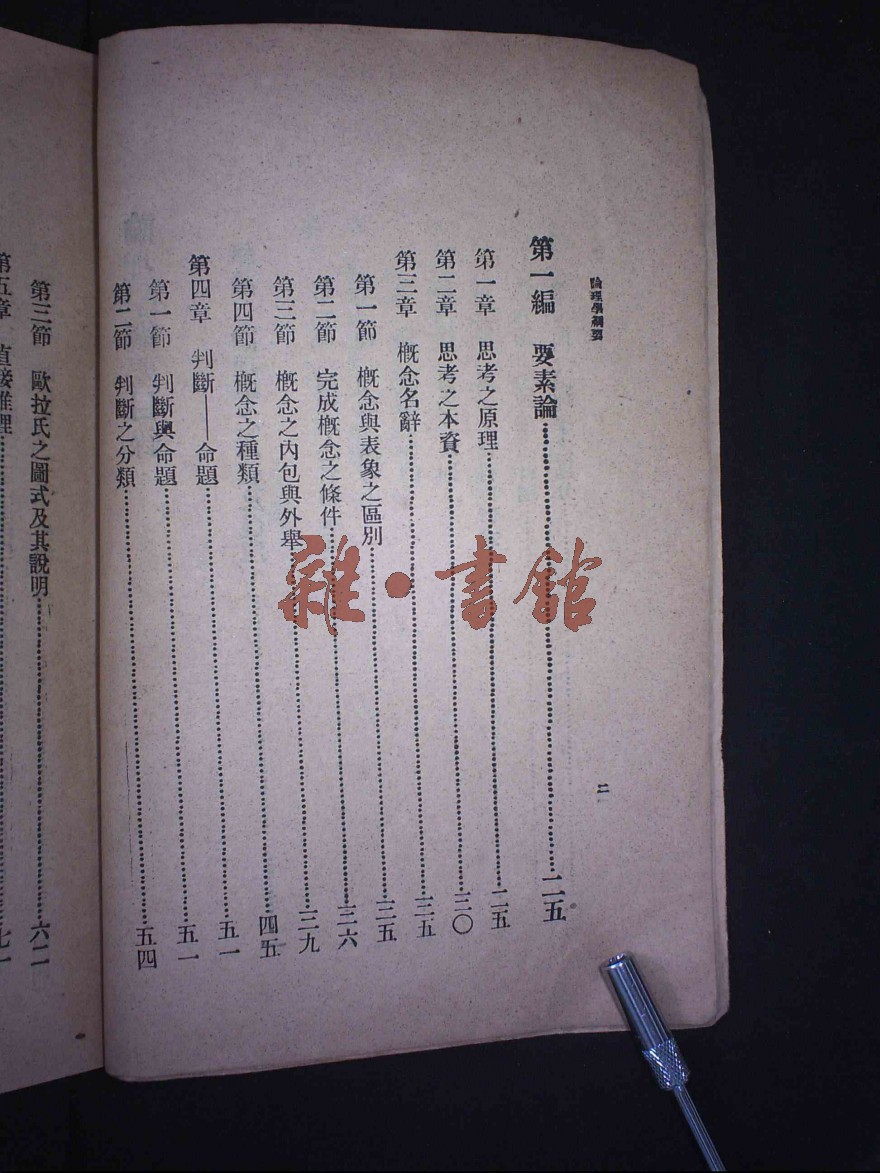 論理學綱要
二
第一編　要素論……二五
第一章　思考之原理……二五
第二章　思考之本資……三〇
第三章　概念名辭……三五
第一節　概念與表象之區別……三五
第二節　完成概念之條件……三六
第三節　概念之內包與外舉……三九
第四節　概念之種類……四五
第四章　判斷——命題……五一
第一節　判斷與命題……五一
第二節　判斷之分類……五四
第三節　歐拉氏之圖式及其說明……六二
第五章　直接推理……七一
雜·書館